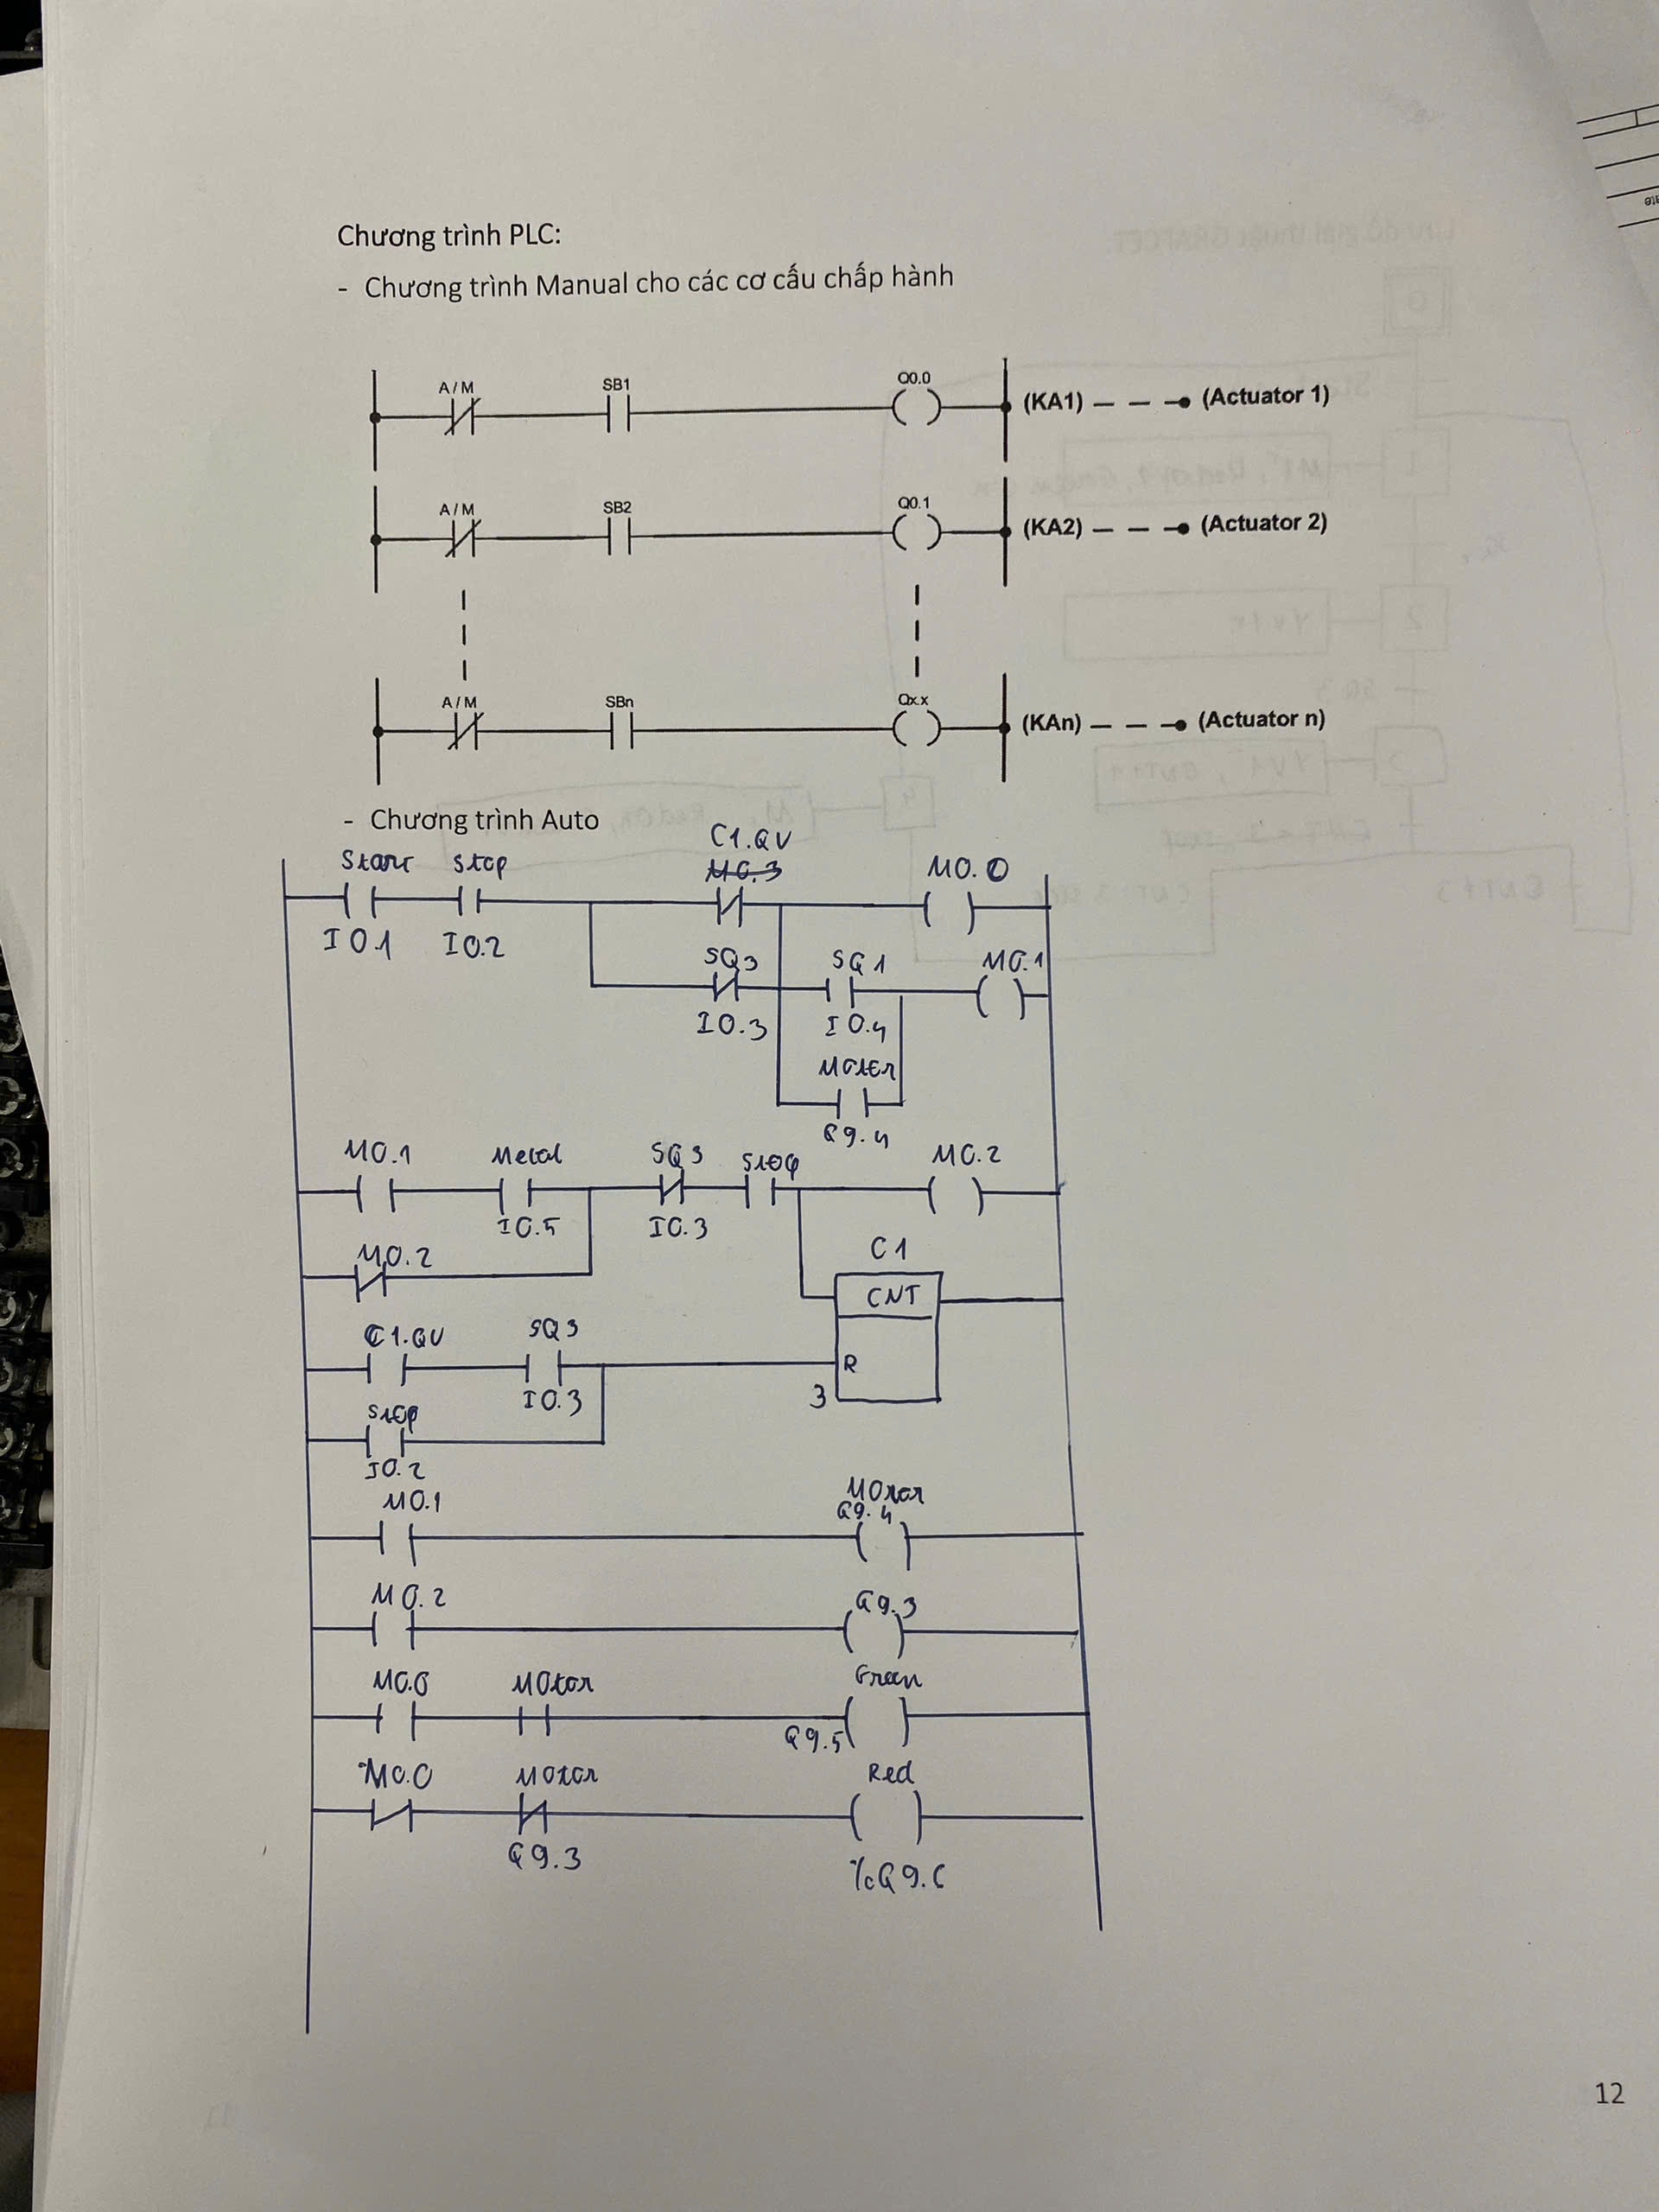 Chương trình PLC:
- Chương trình Manual cho các cơ cấu chấp hành
A/M SB1 Q0.0
(KA1) (Actuator 1)
A/M SB2 Q0.1
(KA2) (Actuator 2)
A/M SBn Qx.x
(KAn) (Actuator n)
- Chương trình Auto
C1.QV
Start Stop M0.3 M0.0
I0.1 I0.2
SQ3 SQ1 M0.1
I0.3 I0.4
Moter
Q9.4
M0.1 Metal SQ3 Stop M0.2
I0.5 I0.3
M0.2
C1
CNT
C1.QV SQ3
R
I0.3 3
Stop
I0.2
M0.1 Motor
Q9.4
M0.2 Q9.3
M0.0 Motor Green
Q9.5
M0.0 Motor Red
Q9.3 %Q9.6
12